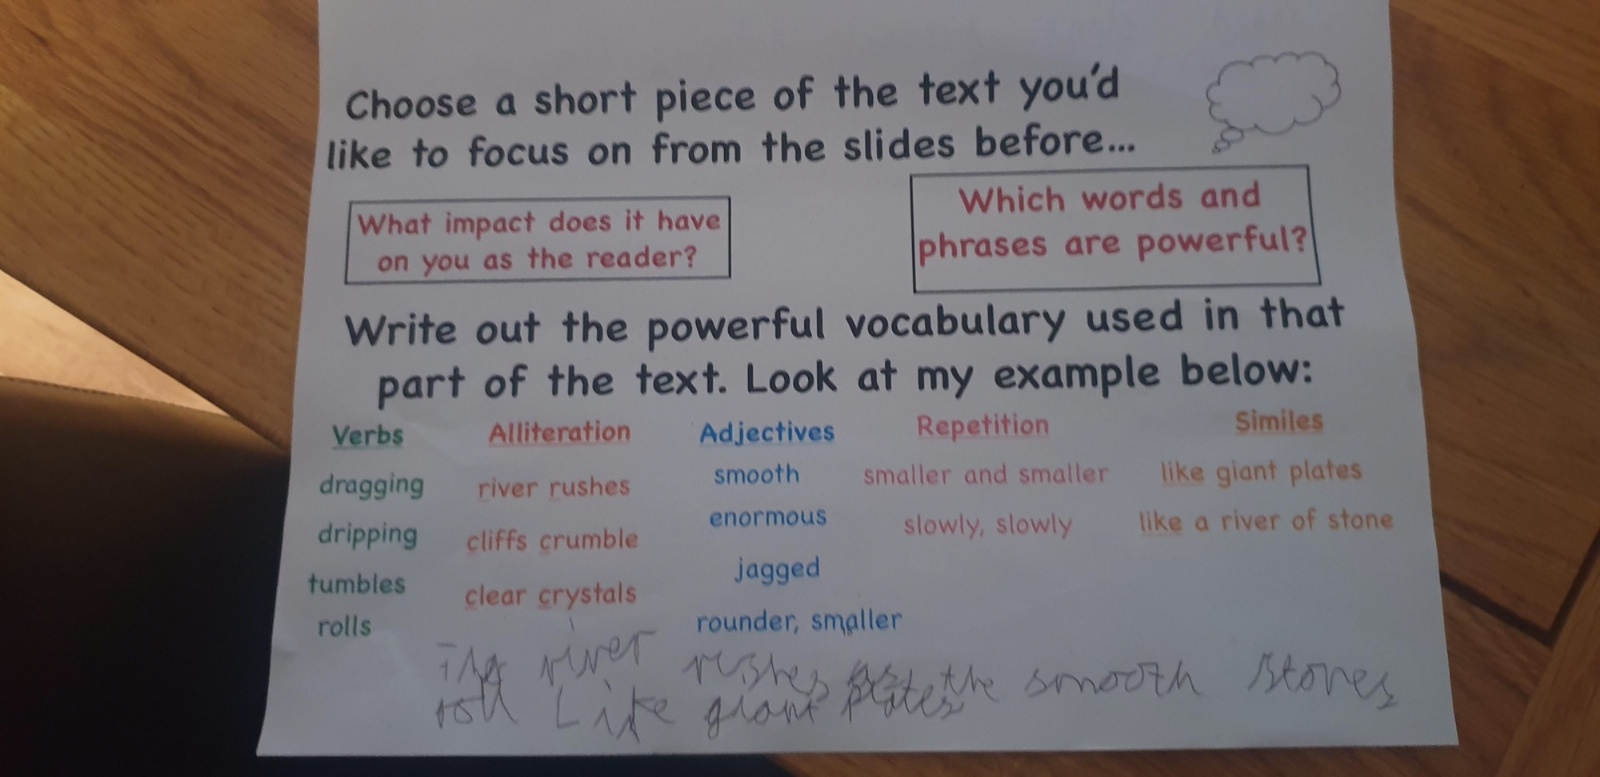 Choose a short piece of the text you'd
like to focus on from the slides before...
What impact does it have
on you as the reader?
Which words and
phrases are powerful?
Write out the powerful vocabulary used in that
part of the text. Look at my example below:
Verbs Alliteration Adjectives Repetition Similes
dragging river rushes smooth smaller and smaller like giant plates
dripping cliffs crumble enormous slowly, slowly like a river of stone
tumbles clear crystals jagged
rolls rounder, smaller
The river rushes as the smooth stones
roll Like giant plates